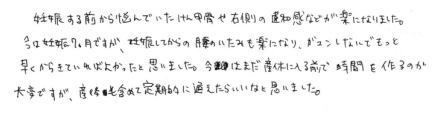 妊娠する前から悩んでいたけん甲骨や右側の違和感などが楽になりました。
今は妊娠7ヶ月ですが、妊娠してからの腰のいたみも楽になり、ガマンしないでもっと
早くからきていればよかったと思いました。今はまだ産休に入る前で時間を作るのが
大変ですが、産休も含めて定期的に通えたらいいなと思いました。